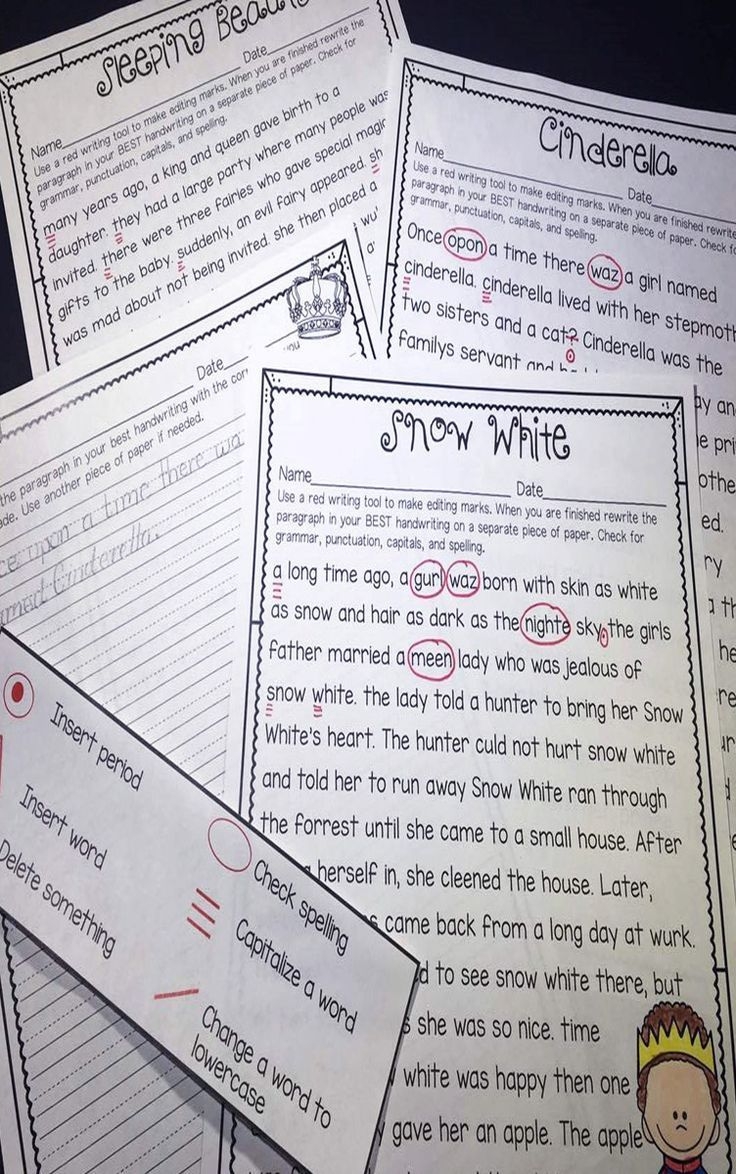 Sleeping Beauty
Name Date
Use a red writing tool to make editing marks. When you are finished rewrite the
paragraph in your BEST handwriting on a separate piece of paper. Check for
grammar, punctuation, capitals, and spelling.
many years ago, a king and queen gave birth to a
daughter. they had a large party where many people was
invited. there were three fairies who gave special magic
gifts to the baby. suddenly, an evil fairy appeared. sh
was mad about not being invited. she then placed a
Cinderella
Name Date
Use a red writing tool to make editing marks. When you are finished rewrite
paragraph in your BEST handwriting on a separate piece of paper. Check f
grammar, punctuation, capitals, and spelling.
Once opon a time there waz a girl named
cinderella. cinderella lived with her stepmoth
two sisters and a cat? Cinderella was the
familys servant and
Date
the paragraph in your best handwriting with the cor
ade. Use another piece of paper if needed.
ce upon a time there wa
amed Cinderella.
Snow White
Name Date
Use a red writing tool to make editing marks. When you are finished rewrite the
paragraph in your BEST handwriting on a separate piece of paper. Check for
grammar, punctuation, capitals, and spelling.
a long time ago, a gurl waz born with skin as white
as snow and hair as dark as the nighte sky the girls
father married a meen lady who was jealous of
snow white. the lady told a hunter to bring her Snow
White's heart. The hunter culd not hurt snow white
and told her to run away Snow White ran through
the forrest until she came to a small house. After
herself in, she cleened the house. Later,
came back from a long day at wurk.
d to see snow white there, but
s she was so nice. time
white was happy then one
gave her an apple. The apple
Insert period
Insert word
Delete something
Check spelling
Capitalize a word
Change a word to
lowercase